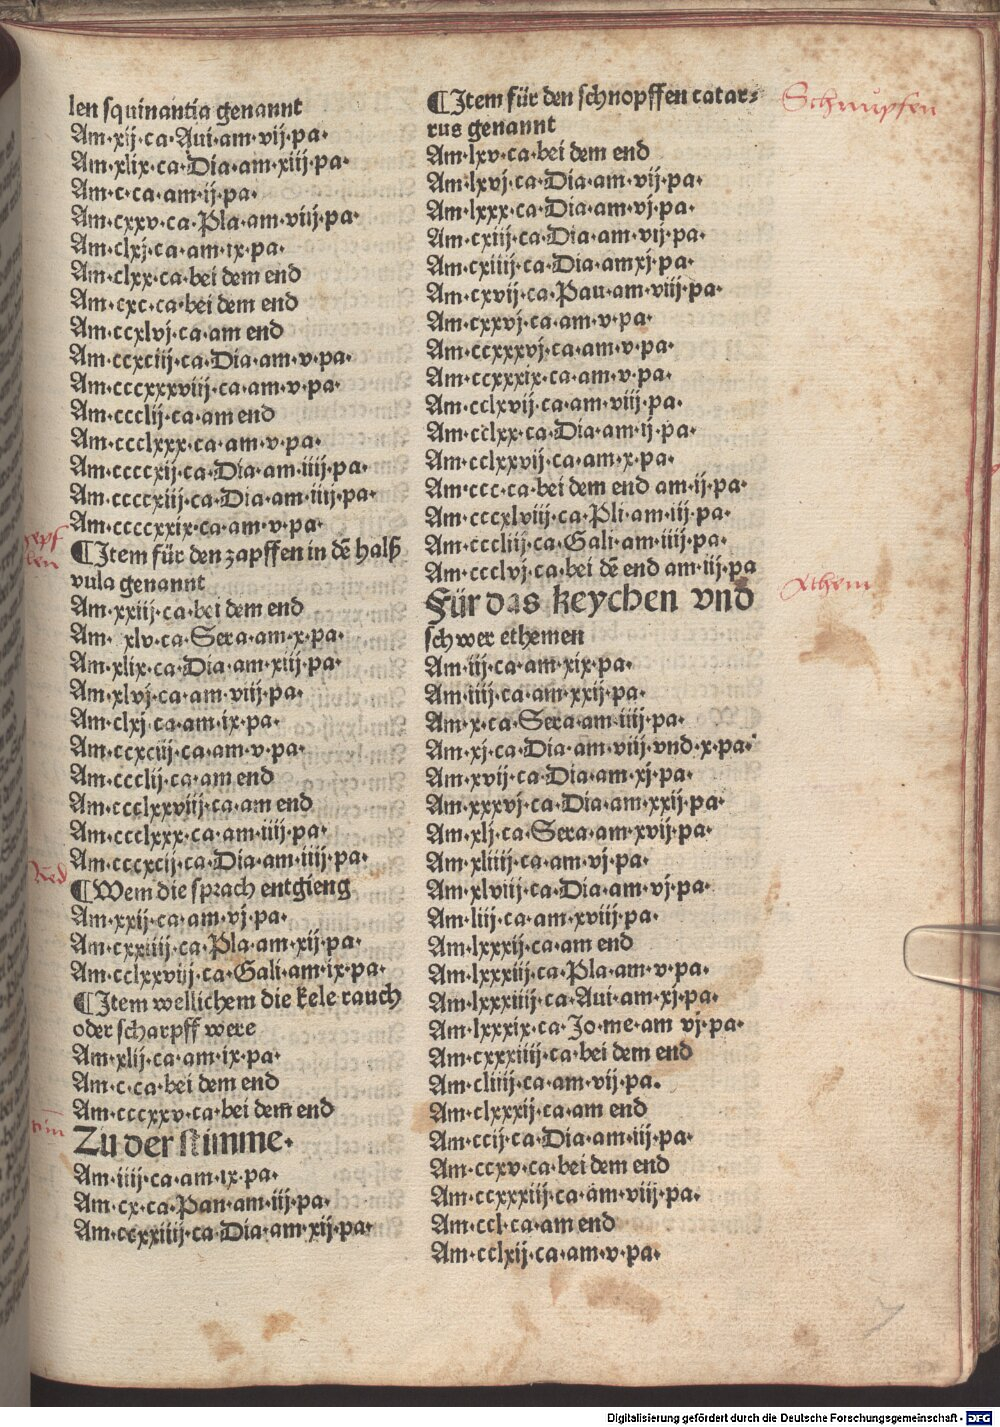 len squinantia genannt
Am·xij·ca·Aui·am·vij·pa·
Am·xlix·ca·Dia·am·xiij·pa·
Am·c·ca·am·ij·pa·
Am·cxxv·ca·Pla·am·viij·pa·
Am·clxj·ca·am·ix·pa·
Am·clxx·ca·bei dem end
Am·cxc·ca·bei dem end
Am·ccxlvj·ca·am end
Am·ccxciij·ca·Dia·am·v·pa·
Am·cccxxxviij·ca·am·v·pa·
Am·ccclij·ca·am end
Am·ccclxxx·ca·am·v·pa·
Am·ccccxij·ca·Dia·am·iiij·pa·
Am·ccccxiij·ca·Dia·am·iiij·pa·
Am·ccccxxix·ca·am·v·pa·
¶Item für den zapffen in dē halß
vula genannt
Am·xxiij·ca·bei dem end
Am· xlv·ca·Sera·am·x·pa·
Am·xlix·ca·Dia·am·xiij·pa·
Am·xlvj·ca·am·viij·pa·
Am·clxj·ca·am·ix·pa·
Am·ccxciij·ca·am·v·pa·
Am·ccclij·ca·am end
Am·ccclxxviij·ca·am end
Am·ccclxxx·ca·am·iiij·pa·
Am·cccxcij·ca·Dia·am·iiij·pa·
¶Wem die sprach entgieng
Am·xxij·ca·am·vj·pa·
Am·cxxiiij·ca·Pla·am·xij·pa·
Am·cclxxvij·ca·Gali·am·ix·pa·
¶Item wellichem die kele rauch
oder scharpff were
Am·xlij·ca·am·ix·pa·
Am·c·ca·bei dem end
Am·cccxxv·ca·bei dem end
Zu der stimme·
Am·iiij·ca·am·ix·pa·
Am·cx·ca·Pan·am·iij·pa·
Am·ccxxiiij·ca·Dia·am·xij·pa·
¶Item für den schnopffen catar⸗
rus genannt
Am·lxv·ca·bei dem end
Am·lxvj·ca·Dia·am·vij·pa·
Am·lxxx·ca·Dia·am·vj·pa·
Am·cxiij·ca·Dia·am·vij·pa·
Am·cxiiij·ca·Dia·amxj·pa·
Am·cxvij·ca·Pau·am·viij·pa·
Am·cxxvj·ca·am·v·pa·
Am·ccxxxvj·ca·am·v·pa·
Am·ccxxxix·ca·am·v·pa·
Am·cclxvij·ca·am·viij·pa·
Am·cclxx·ca·Dia·am·ij·pa·
Am·cclxxvij·ca·am·x·pa·
Am·ccc·ca·bei dem end am·ij·pa·
Am·cccxlviij·ca·Pli·am·iij·pa·
Am·cccliij·ca·Gali·am·iiij·pa·
Am·ccclvj·ca·bei dē end am·iij·pa
Für das keychen vnd
schwer ethemen
Am·iij·ca·am·xix·pa·
Am·iiij·ca·am·xxij·pa·
Am·x·ca·Sera·am·iiij·pa·
Am·xj·ca·Dia·am·viij·vnd·x·pa·
Am·xvij·ca·Dia·am·xj·pa·
Am·xxxvj·ca·Dia·am·xxij·pa·
Am·xlj·ca·Sera·am·xvij·pa·
Am·xliiij·ca·am·vj·pa·
Am·xlviij·ca·Dia·am·vj·pa·
Am·liij·ca·am·xviij·pa·
Am·lxxxij·ca·am end
Am·lxxxiij·ca·Pla·am·v·pa·
Am·lxxxiiij·ca·Aui·am·xj·pa·
Am·lxxxix·ca·Jo·me·am vj·pa·
Am·cxxxiiij·ca·bei dem end
Am·cliiij·ca·am·vij·pa·
Am·clxxxij·ca·am end
Am·ccij·ca·Dia·am·iij·pa·
Am·ccxv·ca·bei dem end
Am·ccxxxiij·ca·am·viij·pa·
Am·ccl·ca·am end
Am·cclxij·ca·am·v·pa·
Schnupfen
Athem
Red
Digitalisierung gefördert durch die Deutsche Forschungsgemeinschaft - DFG